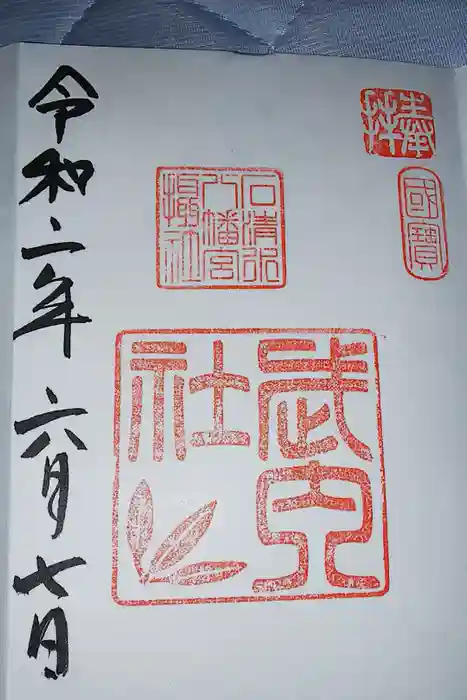 奉拝
國寶
石清水
八幡宮
攝社
武内
社
令和二年 六月 七日